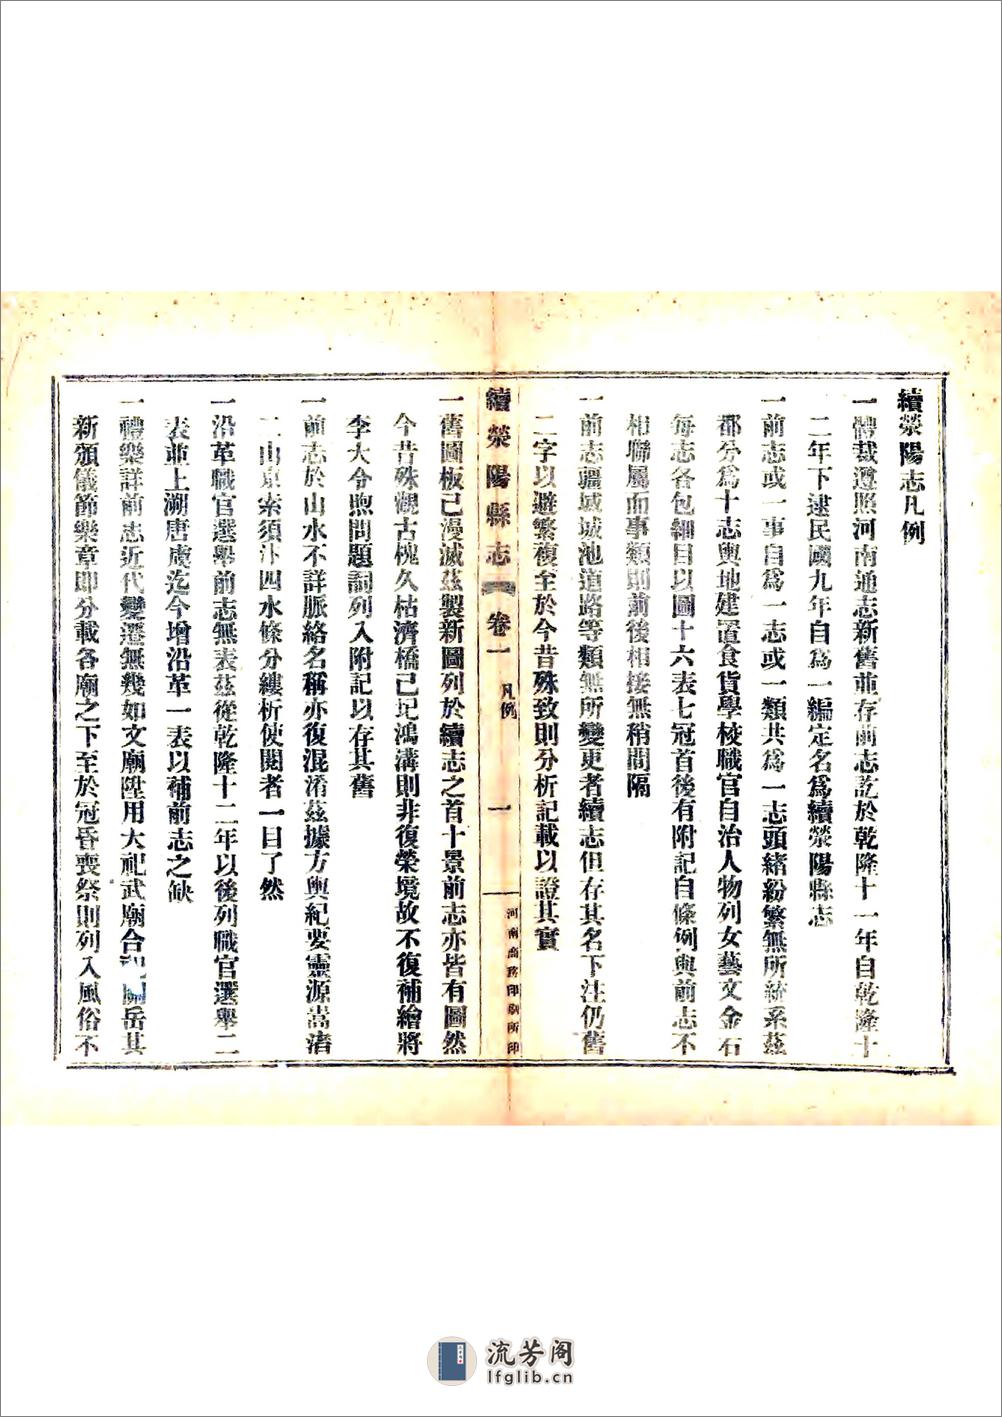 續滎陽志凡例
一體裁遵照河南通志新舊並存前志訖於乾隆十一年自乾隆十
二年下逮民國九年自爲一編定名爲續滎陽縣志
一前志或一事自爲一志或一類共爲一志頭緒紛繁無所統系茲
都分爲十志輿地建置食貨學校職官自治人物列女藝文金石
每志各包細目以圖十六表七冠首後有附記自條例與前志不
相聯屬而事類則前後相接無稍間隔
一前志疆域城池道路等類無所變更者續志但存其名下注仍舊
二字以避繁複至於今昔殊致則分析記載以證其實
續滎陽縣志 卷一 凡例 一 河南商務印刷所印
一舊圖板已漫滅茲製新圖列於續志之首十景前志亦皆有圖然
今昔殊觀古槐久枯濟橋已圮鴻溝則非復榮境故不復補繪將
李大令煦問題詞列入附記以存其舊
一前志於山水不詳脈絡名稱亦復混淆茲據方輿紀要靈源嵩渚
二山京索須汴四水條分縷析使閱者一目了然
一沿革職官選舉前志無表茲從乾隆十二年以後列職官選舉二
表並上溯唐虞迄今增沿革一表以補前志之缺
一禮樂詳前志近代變遷無幾如文廟陞用大祀武廟合祀關岳其
新頒儀節樂章即分載各廟之下至於冠昏喪祭則列入風俗不
流芳阁
lfglib.cn